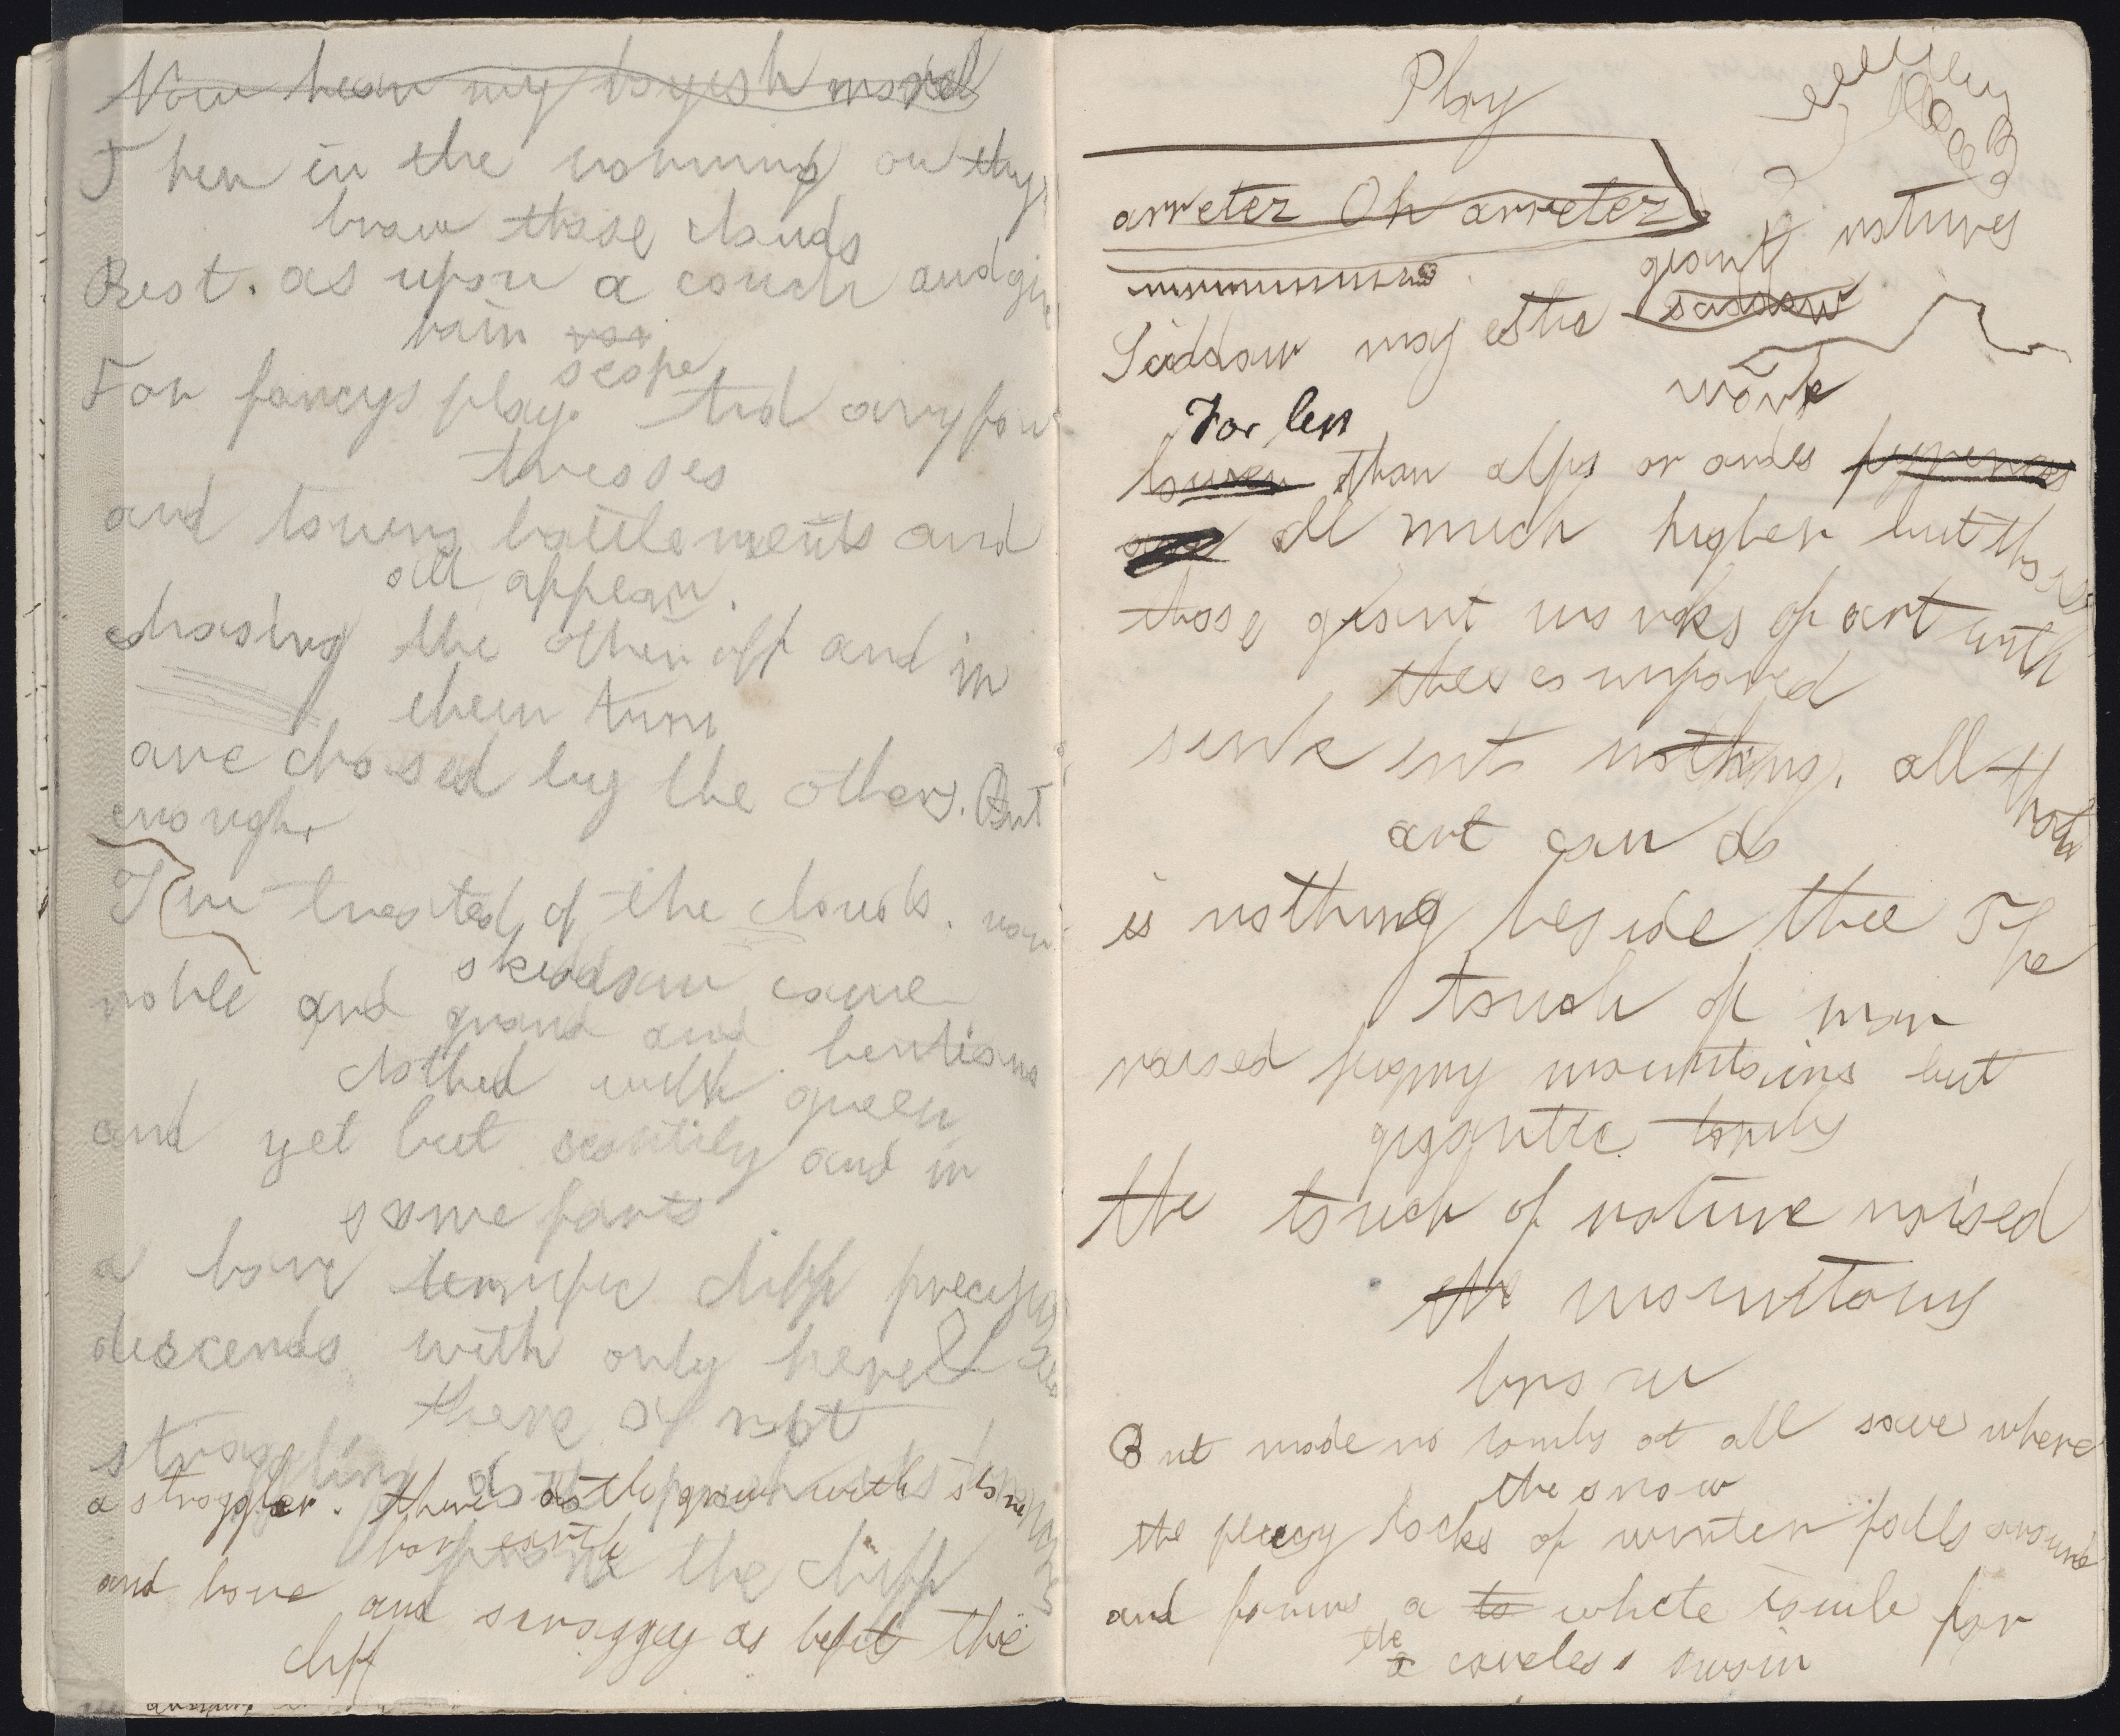 Now hear my
Then in the morning on thy
brow those clouds
Rest. as upon a couch and give
vain
scope
For fancys play. And airy for
tresses
and towers battlements and
all appear.
chasing the other off and in
their turn
are chased by the others. But
enough
I've treated of the clouds. now
skiddaw came
noble and grand and beutious
clothed with green
and yet but scantily and in
some parts
a bare terrific cliff precipitous
descends with only here &
there a root
straggling
a straggler. there as tho grew with stone
for earth
the cliff
and bare and scraggy as befits the
cliff
Play
arretez Oh arretez
giant natures
Sciddaw majestic sciddaw
work
For less
lower than alps or andes pyrenees
all much higher but tho
those giant works of art with
thee compared
sink into nothing. all that
art can do
is nothing beside thee The
touch of man
raised pigmy mountains but
gigantic tombs
the touch of nature raised
the mountains
brow
But made no tombs at all save where
the snow
the fleecy locks of winter falls around
and forms a to white tomb for
the
a careless swain